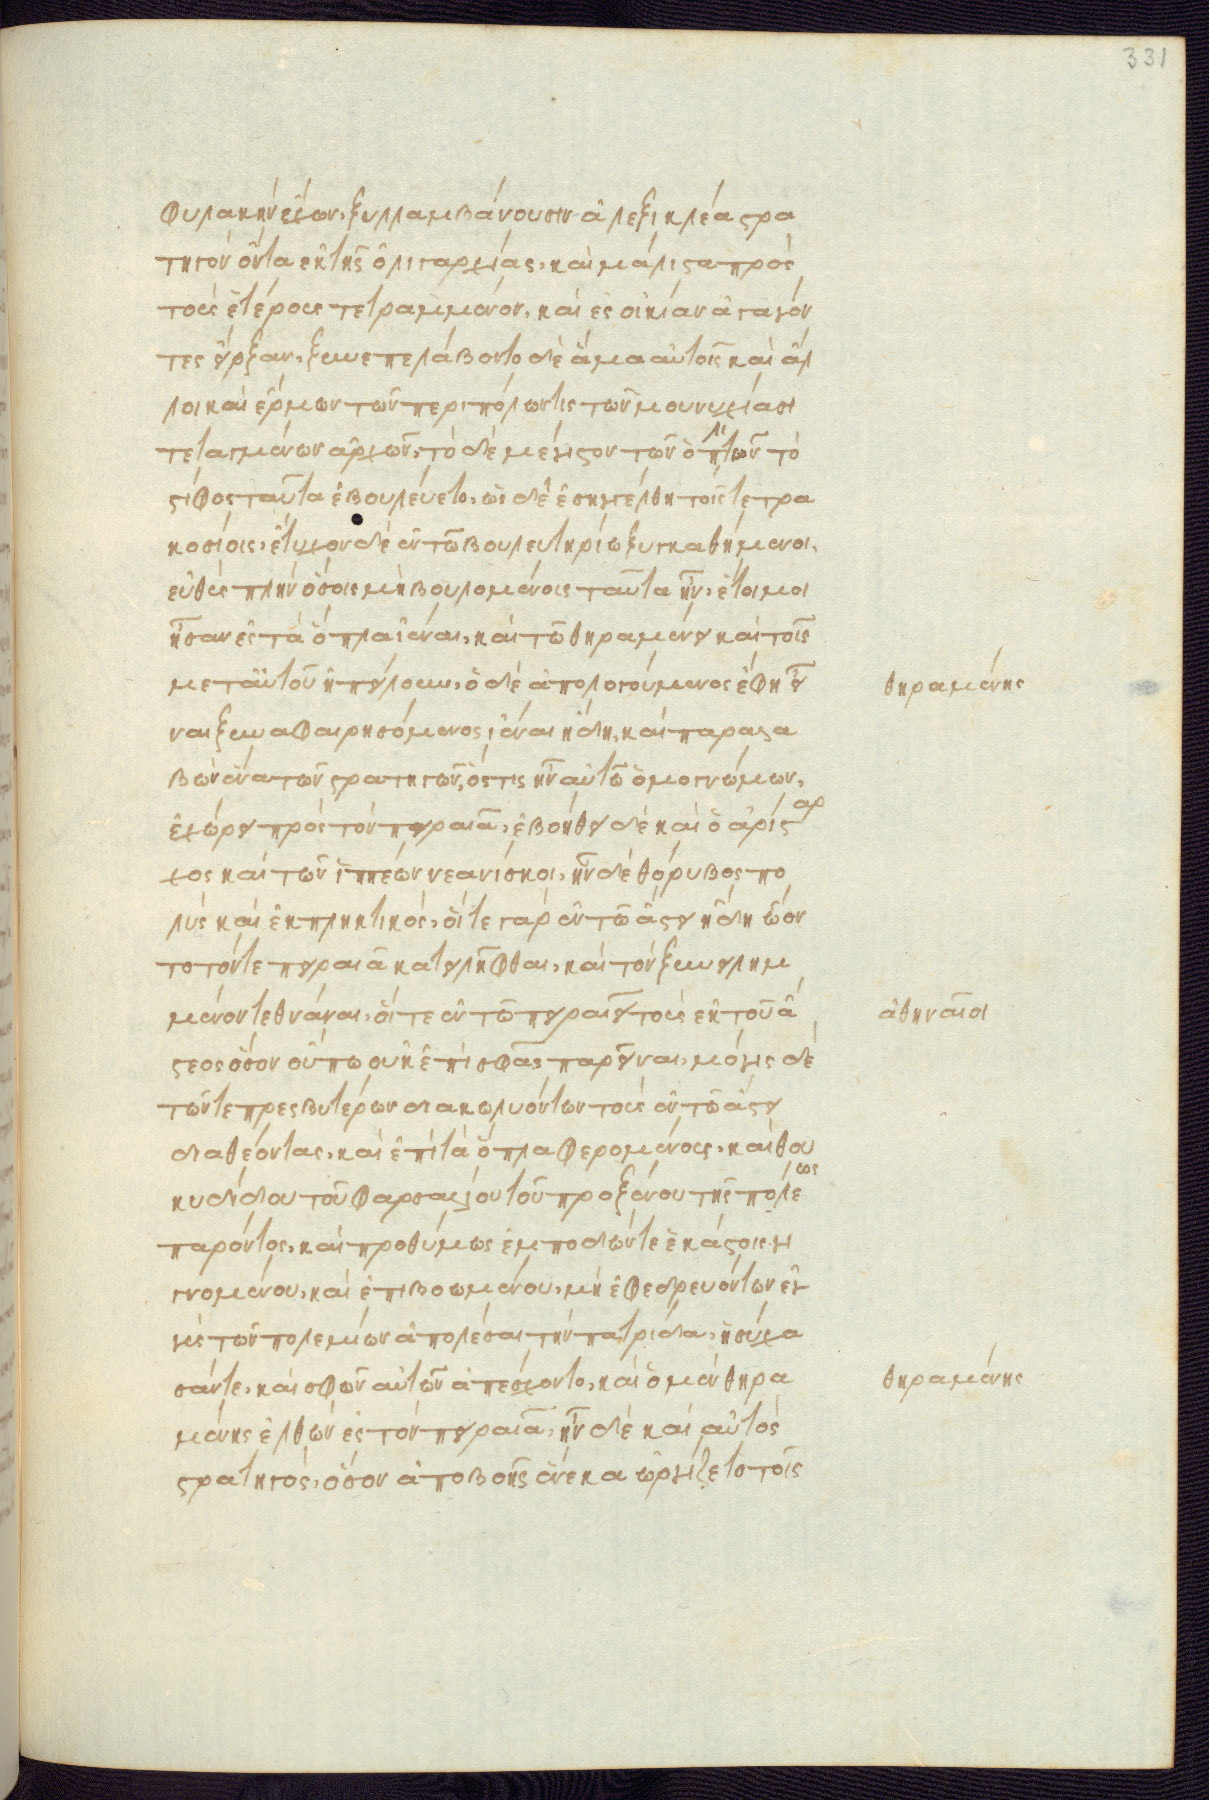 331
φυλακὴν ἔχων, ξυλλαμβάνουσιν ἀλεξικλέα στρα
τηγὸν ὄντα ἐκ τῆς ὀλιγαρχίας, καὶ μάλιστα πρὸς
τοὺς ἑτέρους τετραμμένον, καὶ ἐς οἰκίαν ἀγαγόν
τες εἵρξαν, ξυνεπελάβοντο δὲ ἅμα αὐτοῖς καὶ ἄλ
λοι καὶ ἕρμων τῶν περιπόλων τις τῶν μουνυχίασι
τεταγμένων ἄρχων, τὸ δὲ μέγιστον τῶν ὁπλιτῶν τὸ
στίφος ταῦτα ἐβουλεύετο, ὡς δὲ ἐσηγγέλθη τοῖς τετρα
κοσίοις, ἔτυχον δὲ ἐν τῶ βουλευτηρίω ξυγκαθήμενοι,
εὐθὺς πλὴν ὅσοις μὴ βουλομένοις ταῦτα ἦν, ἕτοιμοι
ἦσαν ἐς τὰ ὅπλα ἰέναι, καὶ τῶ θηραμένει καὶ τοῖς
μετ' αὐτοῦ ἠπείλουν, ὁ δὲ ἀπολογούμενος ἔφη εἶ
θηραμένης
ναι ξυναφαιρησόμενος ἰέναι ἤδη, καὶ παραλα
βὼν ἕνα τῶν στρατηγῶν, ὅστις ἦν αὐτῶ ὁμογνώμων,
ἐχώρει πρὸς τὸν πειραιᾶ, ἐβοήθει δὲ καὶ ὁ ἀρίσταρ
χος καὶ τῶν ἱππέων νεανίσκοι, ἦν δὲ θόρυβος πο
λὺς καὶ ἐκπληκτικός, οἵ τε γὰρ ἐν τῶ ἄστει ἤδη ὤον
το τόν τε πειραιᾶ κατειλῆφθαι, καὶ τὸν ξυνειλημ
μένον τεθνάναι, οἵ τε ἐν τῶ πειραιεῖ τοὺς ἐκ τοῦ ἄ
ἀθηναῖοι
στεος ὅσον οὔπω οὐκ ἐπὶ σφᾶς παρεῖναι, μόγις δὲ
τῶν τε πρεσβυτέρων διακωλυόντων τοὺς ἐν τῶ ἄστει
διαθέοντας, καὶ ἐπὶ τὰ ὅπλα φερομένους, καὶ θου
κυδίδου τοῦ φαρσαλίου τοῦ προξένου τῆς πόλεως
παρόντος, καὶ προθύμως ἐμποδών τε ἑκάστοις γι
γνομένου, καὶ ἐπιβοωμένου, μὴ ἐφεδρευόντων ἐγ
γὺς τῶν πολεμίων ἀπολέσαι τὴν πατρίδα, ἡσύχα
σάν τε, καὶ σφῶν αὐτῶν ἀπέσχοντο, καὶ ὁ μὲν θηρα
θηραμένης
μένης ἐλθὼν ἐς τὸν πειραιᾶ, ἦν δὲ καὶ αὐτὸς
στρατηγός, ὅσον ἀπὸ βοῆς ἕνεκα ὠργίζετο τοῖς